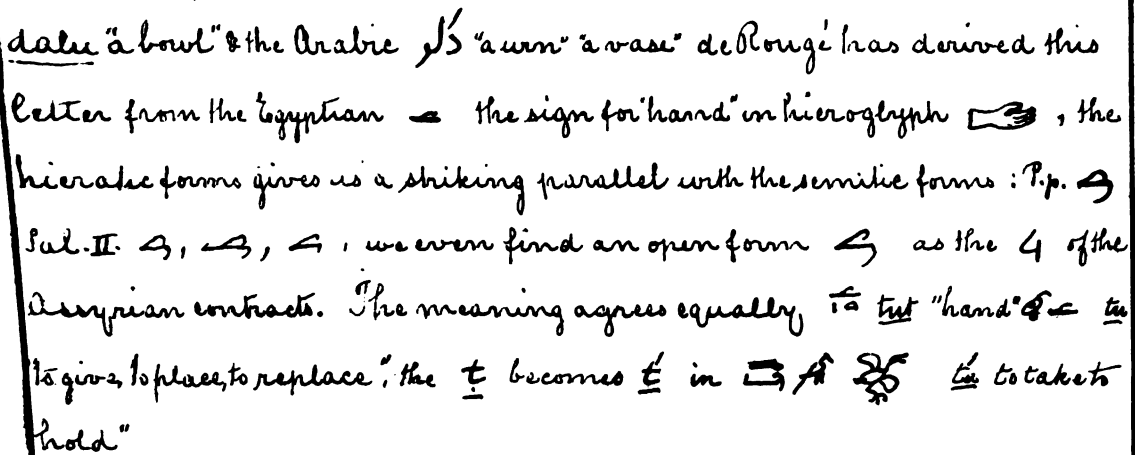 dalu "a bowl" & the Arabic دلو "a urn" "a vase" de Rougé has derived this
letter from the Egyptian the sign for "hand" in hieroglyph , the
hieratic forms gives us a striking parallel with the semitic forms : P.p.
Sal. II. , , . we even find an open form as the 4 of the
Assyrian contracts. The meaning agrees equally, tut "hand" & tu
"to give, to place, to replace", the ṭ becomes t́ in t́u to take to
hold"